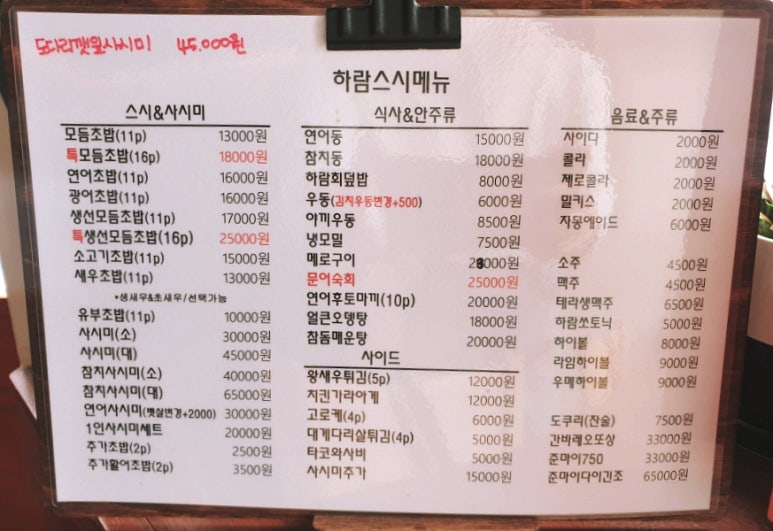 도다리깻잎사시미 45.000원
하람스시메뉴
스시&사시미
모듬초밥(11p) 13000원
특모듬초밥(16p) 18000원
연어초밥(11p) 16000원
광어초밥(11p) 16000원
생선모듬초밥(11p) 17000원
특생선모듬초밥(16p) 25000원
소고기초밥(11p) 15000원
새우초밥(11p) 13000원
*생새우&초새우/선택가능
유부초밥(11p) 10000원
사시미(소) 30000원
사시미(대) 45000원
참치사시미(소) 40000원
참치사시미(대) 65000원
연어사시미(뱃살변경+2000) 30000원
1인사시미세트 20000원
추가초밥(2p) 2500원
추가활어초밥(2p) 3500원
식사&안주류
연어동 15000원
참치동 18000원
하람회덮밥 8000원
우동(김치우동변경+500) 6000원
야끼우동 8500원
냉모밀 7500원
메로구이 23000원
문어숙회 25000원
연어후토마끼(10p) 20000원
얼큰오뎅탕 18000원
참돔매운탕 20000원
사이드
왕새우튀김(5p) 12000원
치킨가라아게 12000원
고로케(4p) 6000원
대게다리살튀김(4p) 5000원
타코와사비 5000원
사시미추가 15000원
음료&주류
사이다 2000원
콜라 2000원
제로콜라 2000원
밀키스 2000원
자몽에이드 6000원
소주 4500원
맥주 4500원
테라생맥주 6500원
하람쏘토닉 5000원
하이볼 8000원
라임하이볼 9000원
우메하이볼 9000원
도쿠리(잔술) 7500원
간바레오또상 33000원
준마이750 33000원
준마이다이긴조 65000원